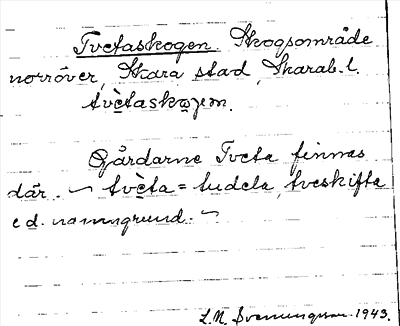 Tvetaskogen. Skogsområde
norröver, Skara stad, Skarab. l.
tvètasko̲gen.
Gårdarne Tveta finnas
där. ~ tvèta = tudela, tveskifta
e d. namngrund. ~
L. N. Svenungsson. 1943.